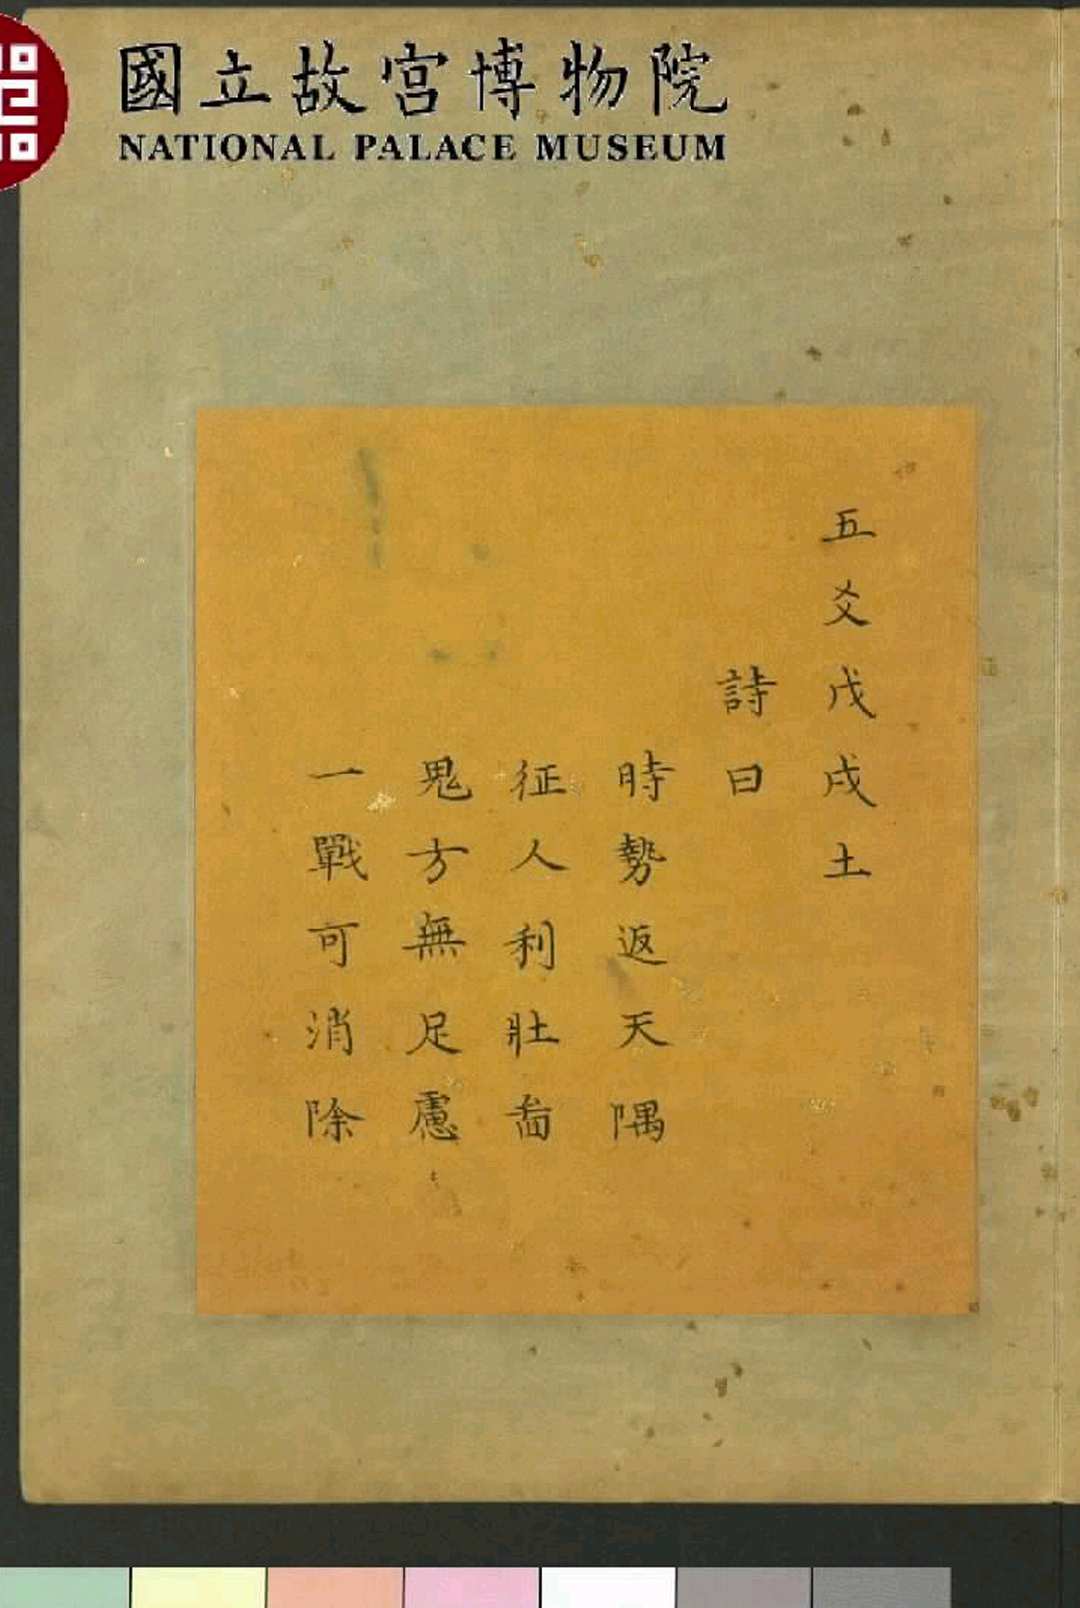 國立故宮博物院
NATIONAL PALACE MUSEUM
五爻戊戌土
詩曰
時勢返天隅
征人利壯啚
鬼方無足慮
一戰可消除